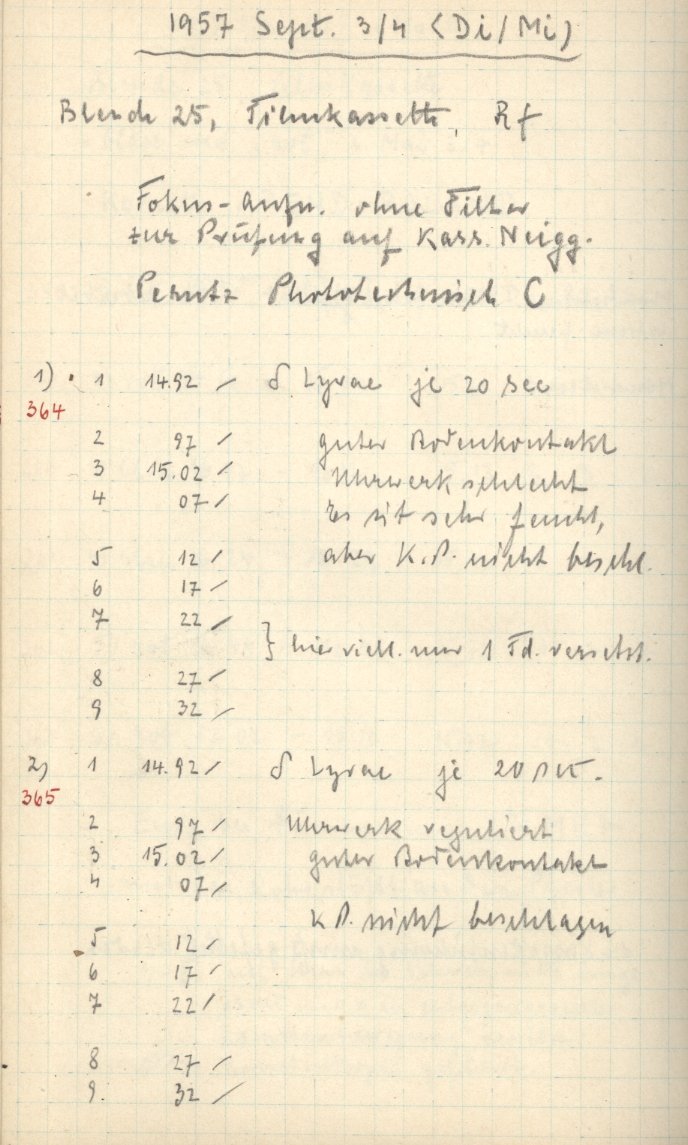 1957 Sept. 3/4 (Di/Mi)
Blende 25, Filmkassette, Rf
Fokus-Aufn. ohne Filter
zur Prüfung auf Kass. Neigg.
Perutz Phototechnisch C
1) 1 14.92 / δ Lyrae je 20 sec
364
2 97 / guter Bodenkontakt
3 15.02 / Uhrwerk schlecht
4 07 / Es ist sehr feucht,
5 12 / aber K.P. nicht beschl.
6 17 /
7 22 /
} hier viell. nur 1 Td. versetzt.
8 27 /
9 32 /
2) 1 14.92 / δ Lyrae je 20 sec.
365
2 97 / Uhrwerk reguliert
3 15.02 / guter Bodenkontakt
4 07 /
K P. nicht beschlagen
5 12 /
6 17 /
7 22 /
8 27 /
9 32 /